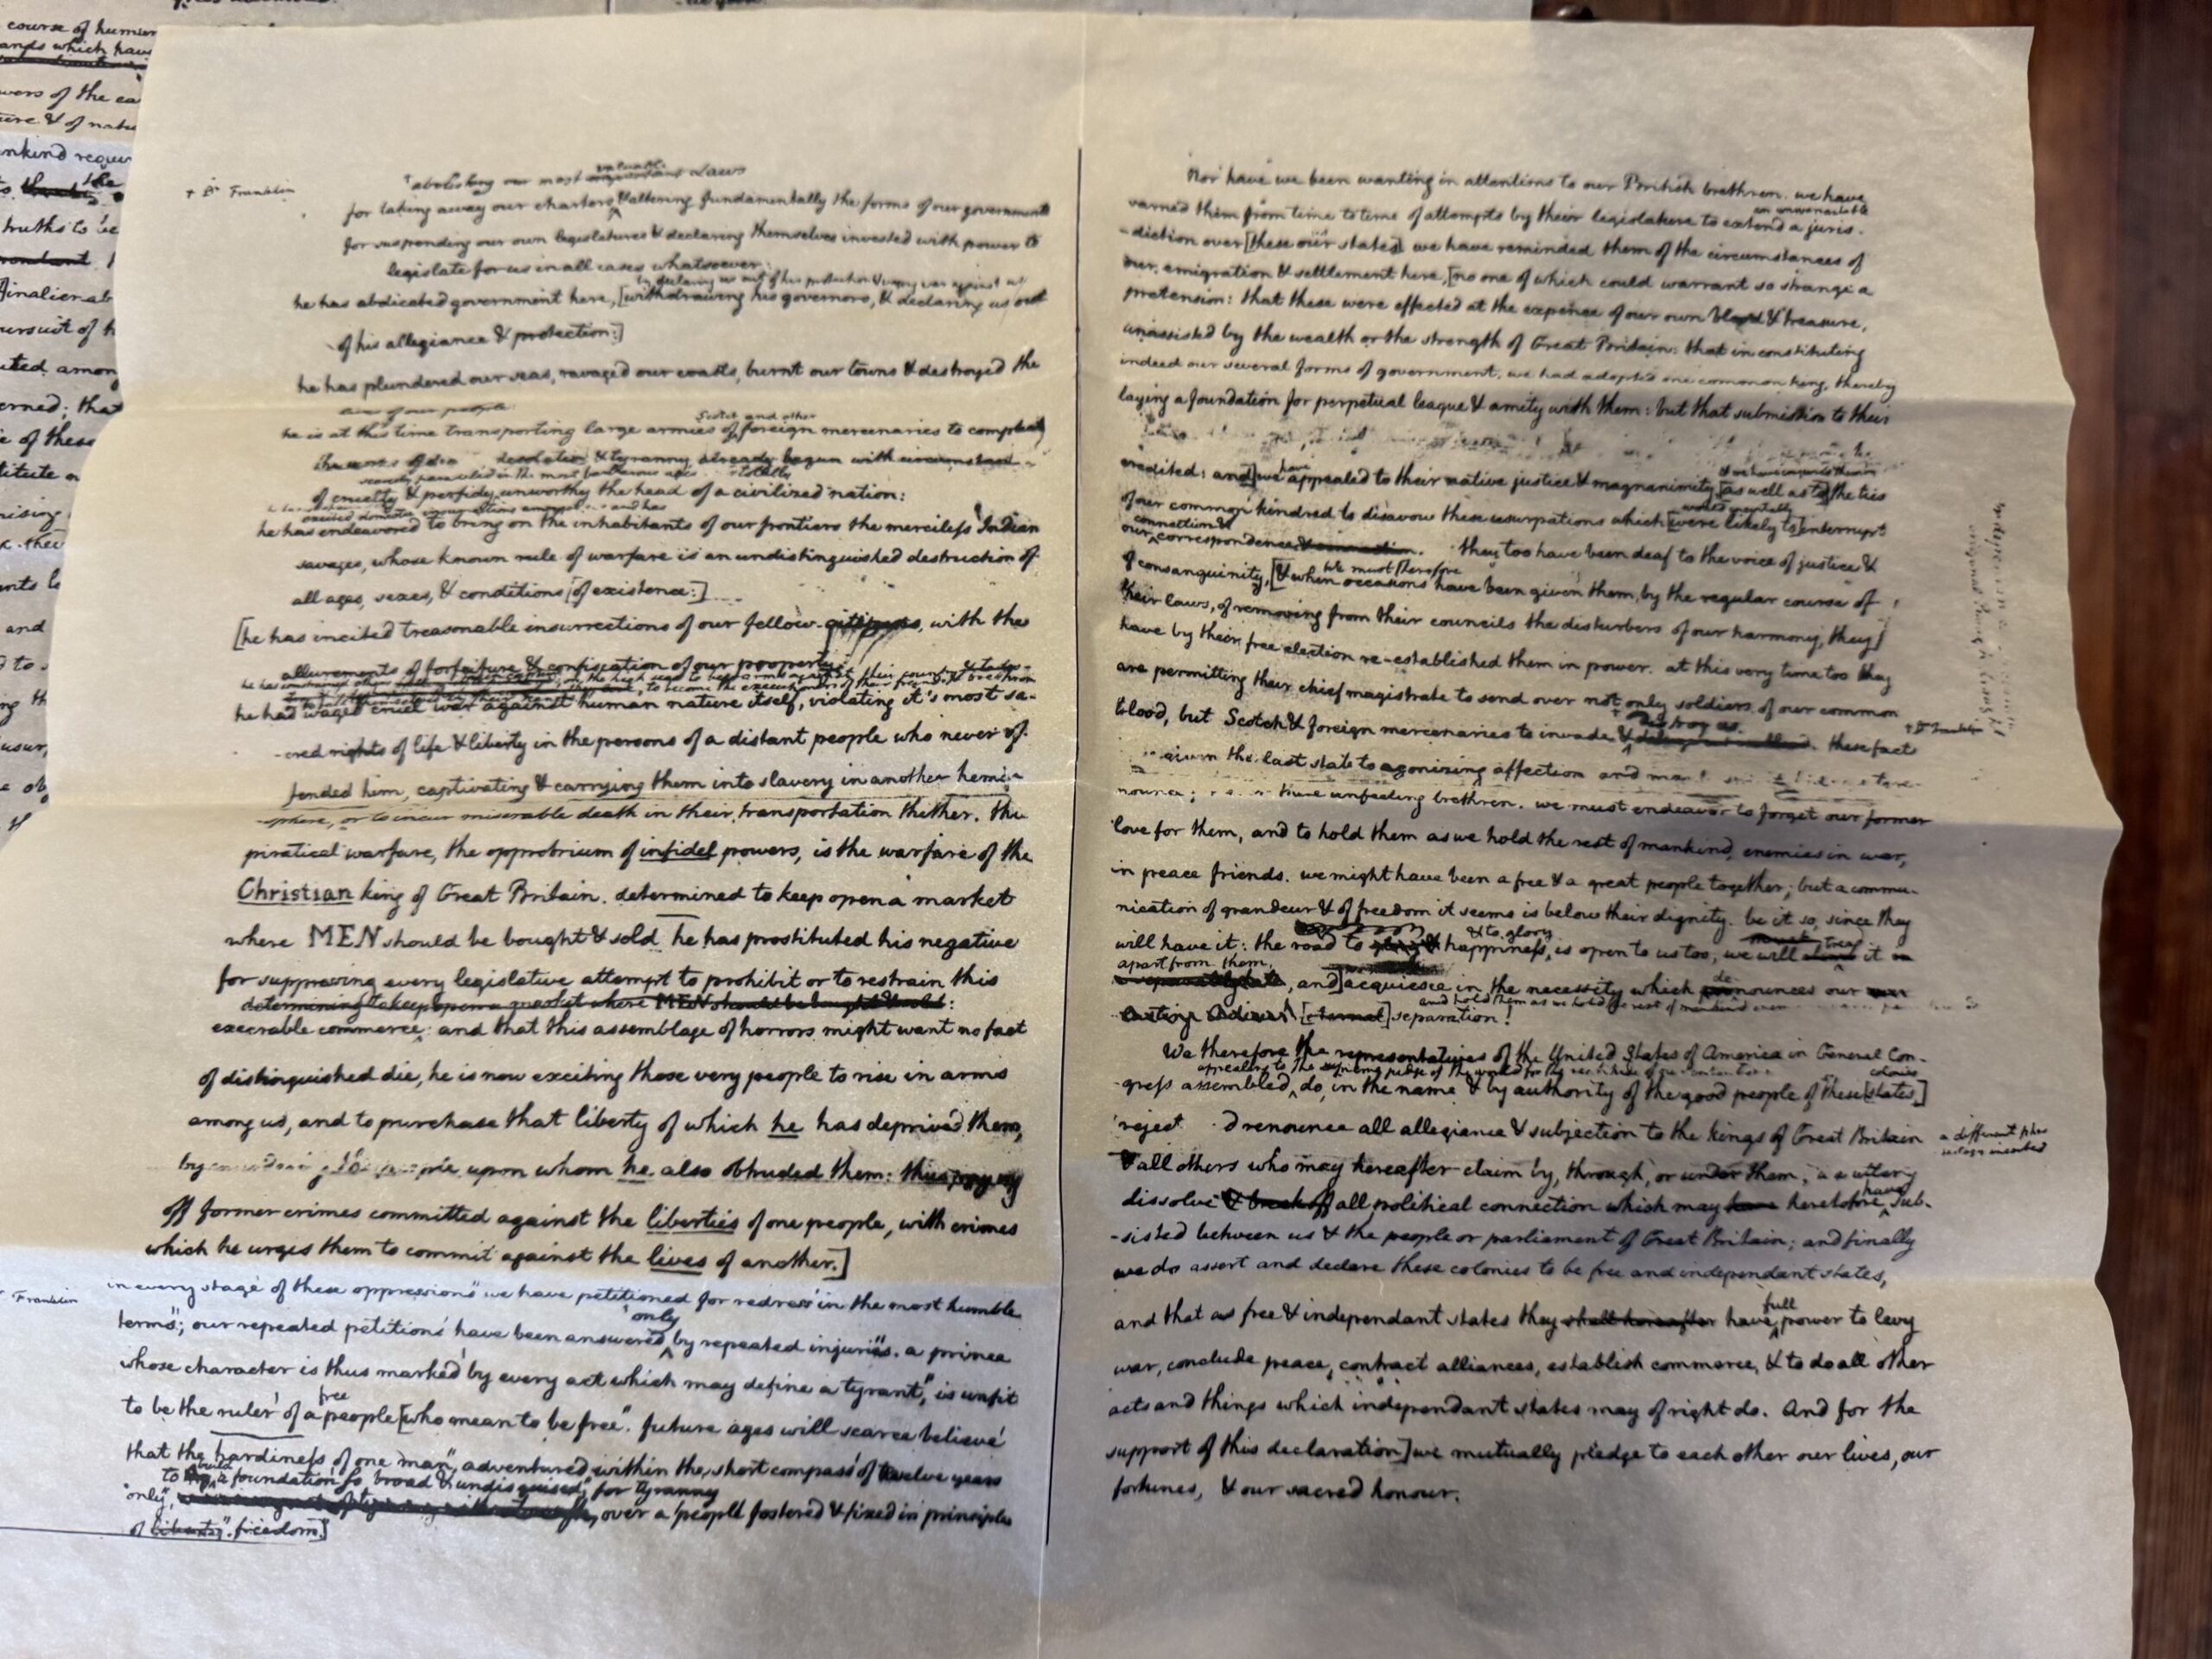 course of human
ands which have
wers of the ea
ure & of natu
nkind requi
the
truths to be
inalienab
ursuit of h
uted among
erned; that
e of these
titute
and
+ Dr Franklin
+ abolishing our most valuable Laws
for taking away our charters, & altering fundamentally the forms of our governments
for suspending our own legislatures & declaring themselves invested with power to
legislate for us in all cases whatsoever:
by declaring us out of his protection & waging war against us
he has abdicated government here, [withdrawing his governors, & declaring us out
of his allegiance & protection:]
he has plundered our seas, ravaged our coasts, burnt our towns & destroyed the
lives of our people:
Scotch and other
he is at this time transporting large armies of foreign mercenaries to compleat
the works of desolation & tyranny already begun with circumstances
scarcely paralleled in the most barbarous ages totally
of cruelty & perfidy unworthy the head of a civilized nation:
excited domestic insurrections amongst and has
he has endeavored to bring on the inhabitants of our frontiers the merciless Indian
savages, whose known rule of warfare is an undistinguished destruction of
all ages, sexes, & conditions [of existence:]
[he has incited treasonable insurrections of our fellow-citizens, with the
allurements of forfeiture & confiscation of our property:
he has waged cruel war against human nature itself, violating it's most sa-
-cred rights of life & liberty in the persons of a distant people who never of-
fended him, captivating & carrying them into slavery in another hemi-
sphere, or to incur miserable death in their transportation thither. this
piratical warfare, the opprobrium of infidel powers, is the warfare of the
Christian king of Great Britain. determined to keep open a market
where MEN should be bought & sold he has prostituted his negative
for suppressing every legislative attempt to prohibit or to restrain this
determining to keep open a market where MEN should be bought & sold:
execrable commerce: and that this assemblage of horrors might want no fact
of distinguished die, he is now exciting those very people to rise in arms
among us, and to purchase that liberty of which he has deprived them,
by people upon whom he also obtruded them: thus paying
off former crimes committed against the liberties of one people, with crimes
which he urges them to commit against the lives of another.]
Franklin
in every stage of these oppressions we have petitioned for redress in the most humble
only
terms; our repeated petitions have been answered by repeated injuries. a prince
whose character is thus marked by every act which may define a tyrant, is unfit
free
to be the ruler of a people [who mean to be free. future ages will scarce believe
that the hardiness of one man, adventured within the short compass of twelve years
to build a foundation so broad & undisguised, for tyranny
only, over a people fostered & fixed in principles
of liberty freedom.]
Nor have we been wanting in attentions to our British brethren. we have
an unwarrantable
warned them from time to time of attempts by their legislature to extend a juris-
-diction over [these our states] we have reminded them of the circumstances of
our emigration & settlement here, [no one of which could warrant so strange a
pretension: that these were effected at the expence of our own blood & treasure,
unassisted by the wealth or the strength of Great Britain: that in constituting
indeed our several forms of government, we had adopted one common king, thereby
laying a foundation for perpetual league & amity with them: but that submission to their
have & we have conjured them by
credited: and] we appealed to their native justice & magnanimity [as well as to] the ties
would inevitably
of our common kindred to disavow these usurpations which [were likely to] interrupt
connection &
our correspondence & connection. they too have been deaf to the voice of justice &
We must therefore
of consanguinity, [& when occasions have been given them, by the regular course of
their laws, of removing from their councils the disturbers of our harmony, they
have by their free election re-established them in power. at this very time too they
are permitting their chief magistrate to send over not only soldiers of our common
destroy us
blood, but Scotch & foreign mercenaries to invade & these facts
+ Dr Franklin
given the last stab to agonizing affection and
these unfeeling brethren. we must endeavor to forget our former
love for them, and to hold them as we hold the rest of mankind, enemies in war,
in peace friends. we might have been a free & a great people together; but a commu-
nication of grandeur & of freedom it seems is below their dignity. be it so, since they
& to glory
will have it: the road to happiness, is open to us too, we will tread it
apart from them,
and] acquiesce in the necessity which denounces our
and hold them as we hold the rest of mankind
[eternal] separation!
We therefore the representatives of the United States of America in General Con-
appealing to the supreme judge of the world for the rectitude of our intentions colonies
-gress assembled, do, in the name & by authority of the good people of these [states]
reject renounce all allegiance & subjection to the kings of Great Britain
& all others who may hereafter claim by, through, or under them; we utterly
a different phraseology inserted
have
dissolve & break off all political connection which may have heretofore sub-
-sisted between us & the people or parliament of Great Britain; and finally
we do assert and declare these colonies to be free and independant states,
full
and that as free & independant states they shall hereafter have power to levy
war, conclude peace, contract alliances, establish commerce, & to do all other
acts and things which independant states may of right do. And for the
support of this declaration] we mutually pledge to each other our lives, our
fortunes, & our sacred honour.